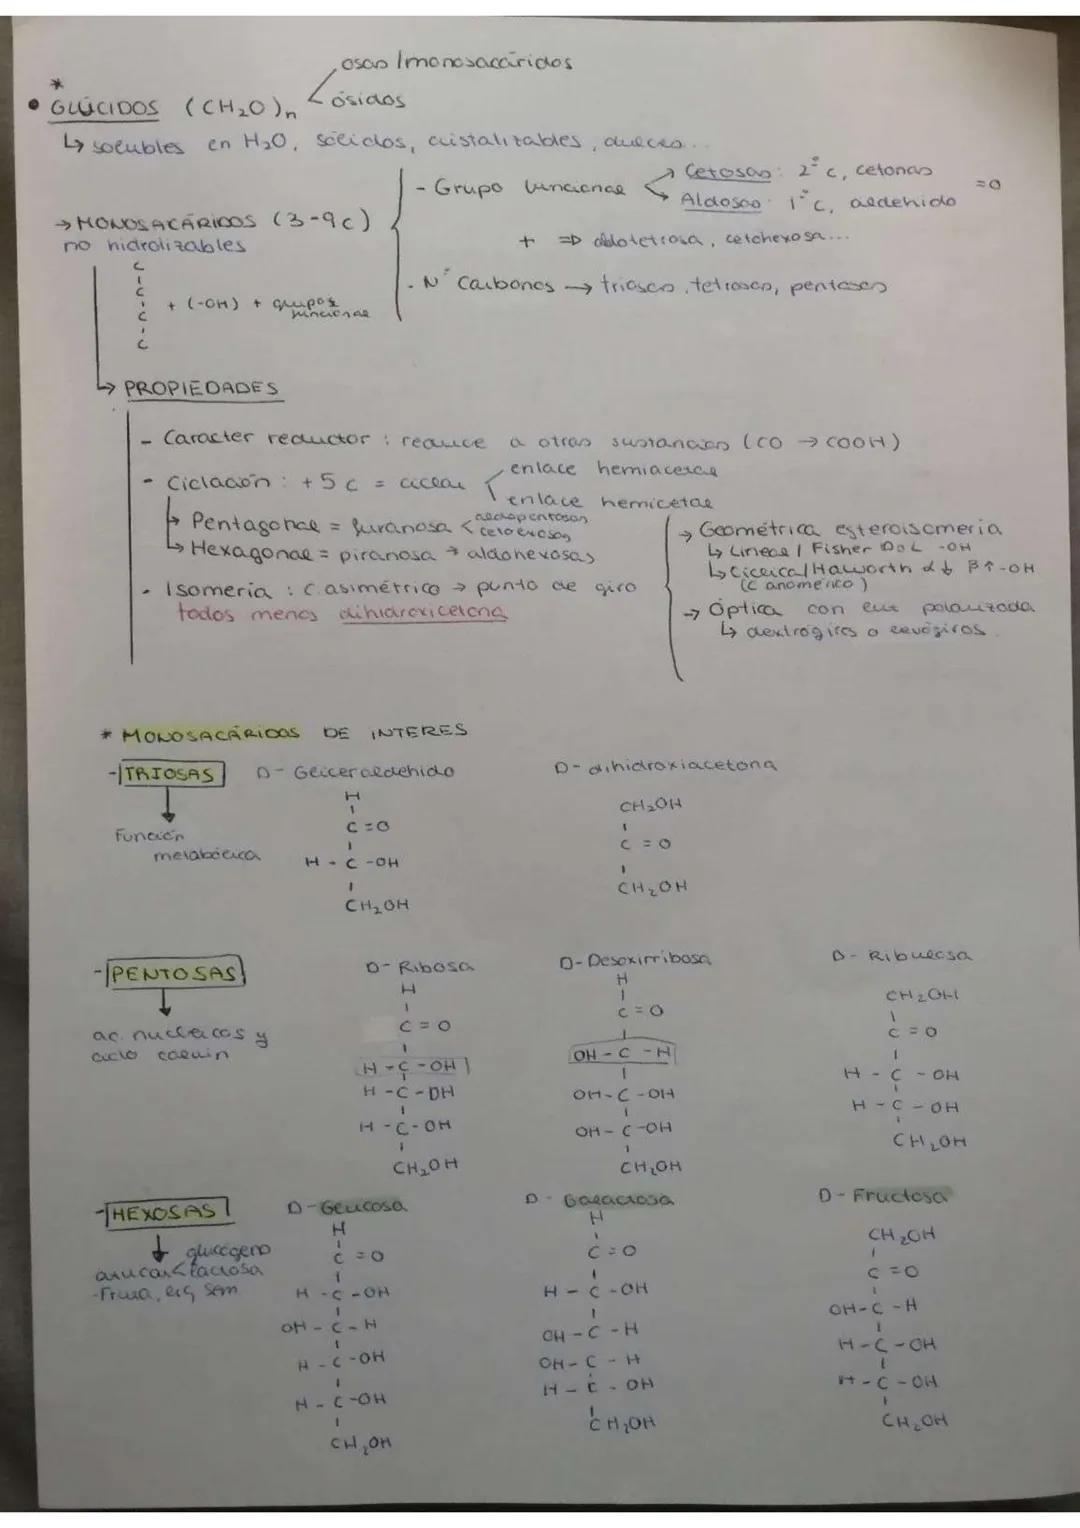 osas / monosacáridos
*
• GLÚCIDOS (CH₂O)n < ósidos
↳ solubles en H₂O, sólidos, cristalizables, dulces...
- Grupo funcional
Cetosas: 2º c, cetonas
Aldosas: 1º c, aldehido
=O
+ ⇒ aldotetrosa, cetohexosa...
- Nº Carbonos → triosas, tetrosas, pentosas
→ MONOSACÁRIDOS (3-9c)
no hidrolizables
C
C
C
C
+ (-OH) + grupos
funcional
↳ PROPIEDADES
- Caracter reductor : reduce a otras sustancias (CO → COOH)
- Ciclación : +5 c = ciclar
enlace hemiacetal
enlace hemicetal
↳ Pentagonal = furanosa < aldopentosas
cetohexosas
↳ Hexagonal = piranosa → aldohexosas
- Isomería : C. asimétrico → punto de giro
todos menos dihidroxicetona
→ Geométrica esteroisomeria
↳ Lineal / Fisher D o L -OH
↳ Ciclica / Haworth α↓ β↑ -OH
(C anomérico)
→ Óptica con luz polarizada
↳ dextrógiros o levógiros.
* MONOSACÁRIDOS DE INTERES
- TRIOSAS
Función
metabólica
D- Gliceraldehido
H
C=O
H - C -OH
CH₂OH
D- dihidroxiacetona
CH₂OH
C = O
CH₂OH
- PENTOSAS
ac. nucleicos y
ciclo calvin
D- Ribosa
H
C = O
H - C - OH
H - C - OH
H - C - OH
CH₂OH
D-Desoxirribosa
H
C = O
OH - C - H
OH - C - OH
OH - C - OH
CH₂OH
D- Ribulosa
CH₂OH
C = O
H - C - OH
H - C - OH
CH₂OH
- HEXOSAS
glucógeno
azucar < lactosa
-Fruta, liq sem
D-Glucosa
H
C = O
H - C - OH
OH - C - H
H - C - OH
H - C - OH
CH₂OH
D - Galactosa
H
C = O
H - C - OH
OH - C - H
OH - C - H
H - C - OH
CH₂OH
D- Fructosa
CH₂OH
C = O
OH - C - H
H - C - OH
H - C - OH
CH₂OH